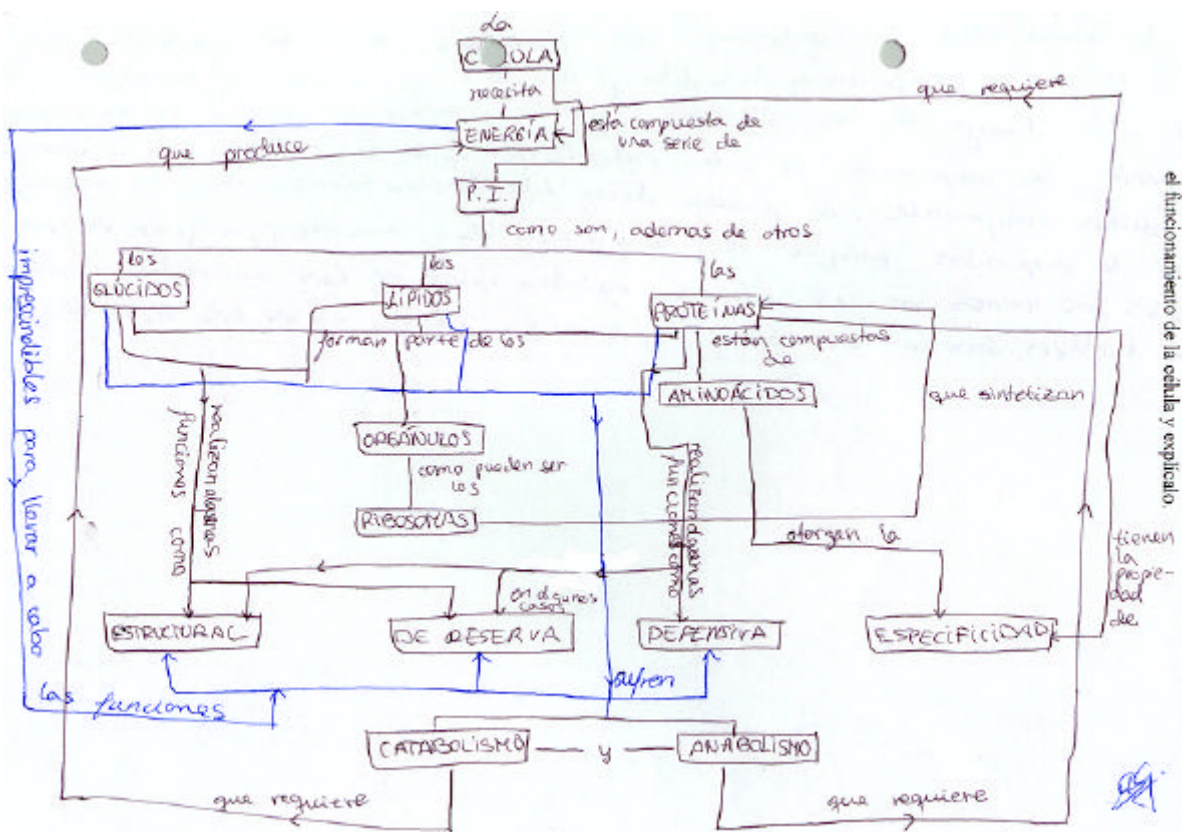 La
CÉLULA
necesita
que requiere
ENERGÍA
está compuesta de
una serie de
que produce
P.I.
como son, ademas de otros
los
los
las
GLÚCIDOS
LÍPIDOS
PROTEÍNAS
forman parte de los
están compuestas
de
AMINOÁCIDOS
que sintetizan
ORGÁNULOS
como pueden ser
los
RIBOSOMAS
realizan
funciones como
realizando
funciones como
otorgan la
tienen
la
propie-
dad
de
en algunos
casos
ESTRUCTURAL
DE RESERVA
DEFENSIVA
ESPECIFICIDAD
imprescindibles para llevar a cabo
las funciones
sufren
CATABOLISMO
y
ANABOLISMO
que requiere
que requiere
el funcionamiento de la célula y explícalo.